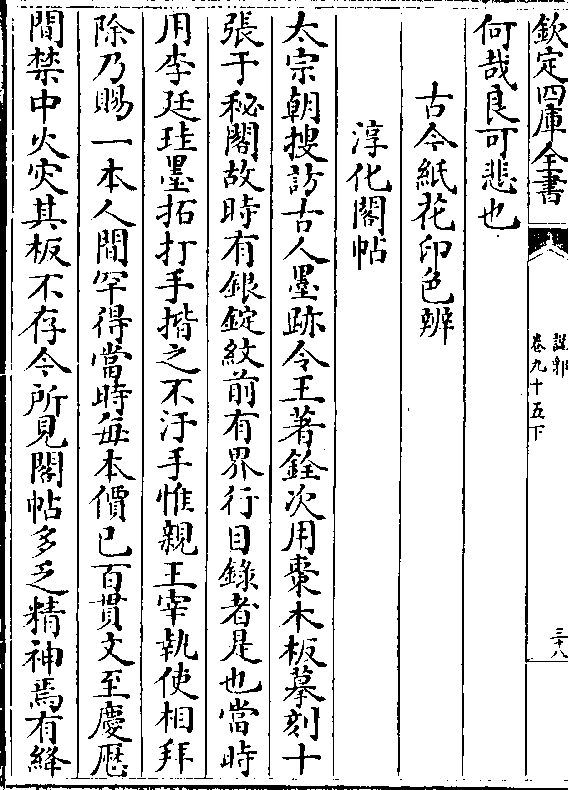 欽定四庫全書
說郛
卷九十五下
三十八
何哉良可悲也
古今紙花印色辨
淳化閣帖
太宗朝搜訪古人墨跡令王著銓次用棗木板摹刻十
張于秘閣故時有銀錠紋前有界行目錄者是也當時
用李廷珪墨拓打手揩之不汙手惟親王宰執使相拜
除乃賜一本人間罕得當時每本價已百貫文至慶厯
間禁中火灾其板不存今所見閣帖多乏精神焉有絳